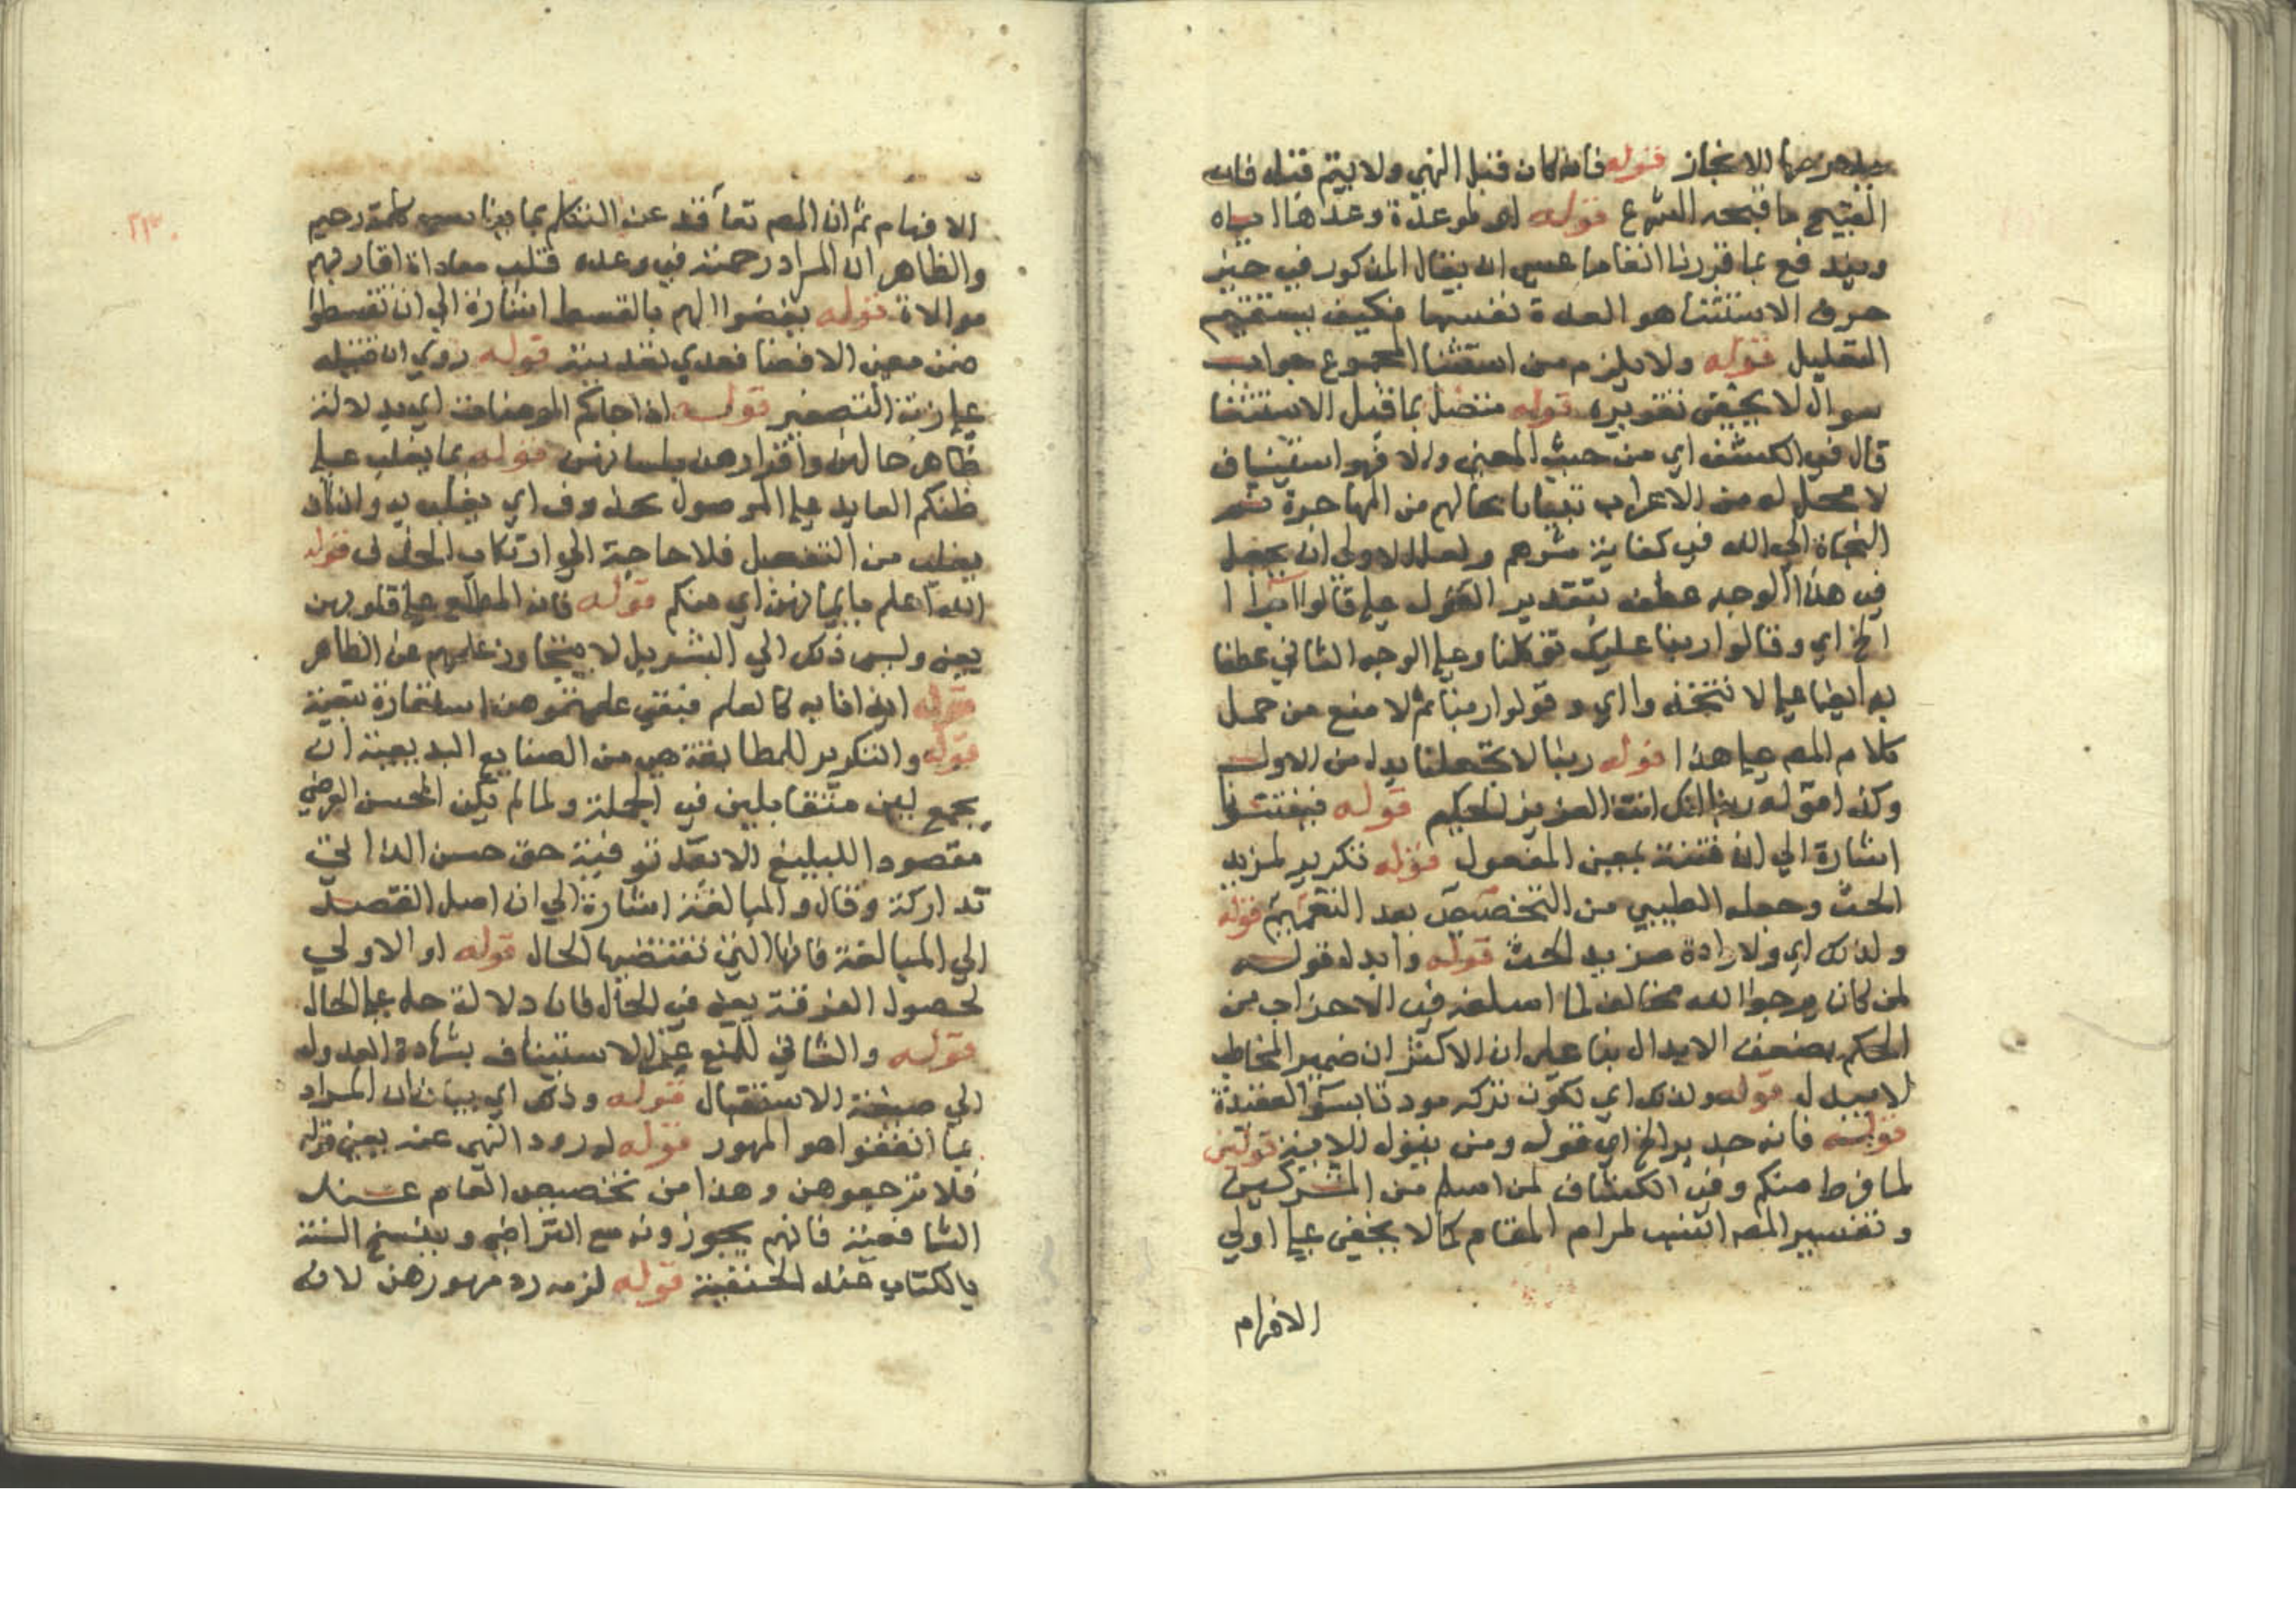 الانجاز قوله فانه كان قبل النهي ولا يتم قبله فان
القبيح ما قبحه الشرع قوله او لموعدة وعدها اياه
ويندفع بما قررنا انفا ما عسى ان يقال المذكور في حيز
حرف الاستثنا هو العدة نفسها فكيف يستقيم
التعليل قوله ولا يلزم من استثنا المجموع جواب
سوال لا يخفى تقريره قوله متصل بما قبل الاستثنا
قال في الكشف اي من حيث المعنى والا فهو استيناف
لا محل له من الاعراب بحالهم من المهاجرة ثم
الى الله في كفاية شرهم ولعل الاولى ان يجعل
في هذا الوجه عطف بتقدير القول على قالوا
الخ اي وقالوا ربنا عليك توكلنا وعلى الوجه الثاني عطفا
به ايضا على لا تتخذوا اي وقولوا ربنا ثم لا منع من حمل
كلام المص على هذا قوله ربنا لا تجعلنا بدل من الاول
وكذا قوله ربنا انك انت العزيز الحكيم قوله
اشارة الى ان فتنة بمعنى المفعول قوله تكرير لمزيد
الحث وجعله الطيبي من التخصيص بعد التعميم قوله
ولذلك اي ولارادة مزيد الحث قوله وابدل قوله
لمن كان يرجوا الله مخالف لما اسلفه في الاحزاب من
الحكم بضعف الابدال بنا على ان الاكثر ان ضمير المخاطب
لا يبدل له قوله ولذلك اي لكون تركه سو العقيدة
قوله فانه جدير الخ اي قوله ومن يتول الاية قوله
لما فرط منكم وفي الكشاف لمن اسلم من المشركين
وتفسير المص انسب لمرام المقام كما لا يخفى على اولي
الافهام
٢٣٠
الافهام ثم ان المص تعا قد عن التكلم بما يناسب كلمة رحيم
والظاهر ان المراد رحمته في وعده قلب معاداة اقاربهم
موالاة قوله يفضوا اليهم بالقسط اشارة الى ان تقسطوا
ضمن معنى الافضا فعدي تعديته قوله روي ان قتيلة
على زنة التصغير قوله اذا جاكم المومنات اي بدلالة
ظاهر حالهن واقرارهن بلسانهن قوله بما يغلب على
ظنكم العايد على الموصول محذوف اي يغلب به وان كان
يغلب من التفعيل فلا حاجة الى ارتكاب الحذف قوله
الله اعلم بايمانهن اي منكم قوله فانه المطلع على قلوبهن
يعني وليس ذلك الى البشر بل لا يتجاوز علمهم عن الظاهر
قوله ايذانا بانه كالعلم ففي علمتموهن استعارة تبعية
قوله والتكرير للمطابقة هي من الصنايع البديعية ان
يجمع بين متقابلين في الجملة ولما لم يكن المحسن العرضي
مقصودا للبليغ الا بعد توفية حق حسن الذاتي
تداركه وقال والمبالغة اشارة الى ان اصل القصد
الى المبالغة فانها التي تقتضيها الحال قوله او الاولى
لحصول الفرقة يعني في الحال فان دلالة حل على الحال
قوله والثاني للمنع عن الاستيناف بشهادة العدول
الى صيغة الاستقبال قوله وذلك اي بيان ان المراد
بما انفقوا هو المهور قوله لورود النهي عنه يعني قوله
فلا ترجعوهن وهذا من تخصيص العام عند
الشافعية فانهم يجوزونه مع التراخي وبنسخ السنة
بالكتاب عند الحنفية قوله لزمه رد مهورهن لانه